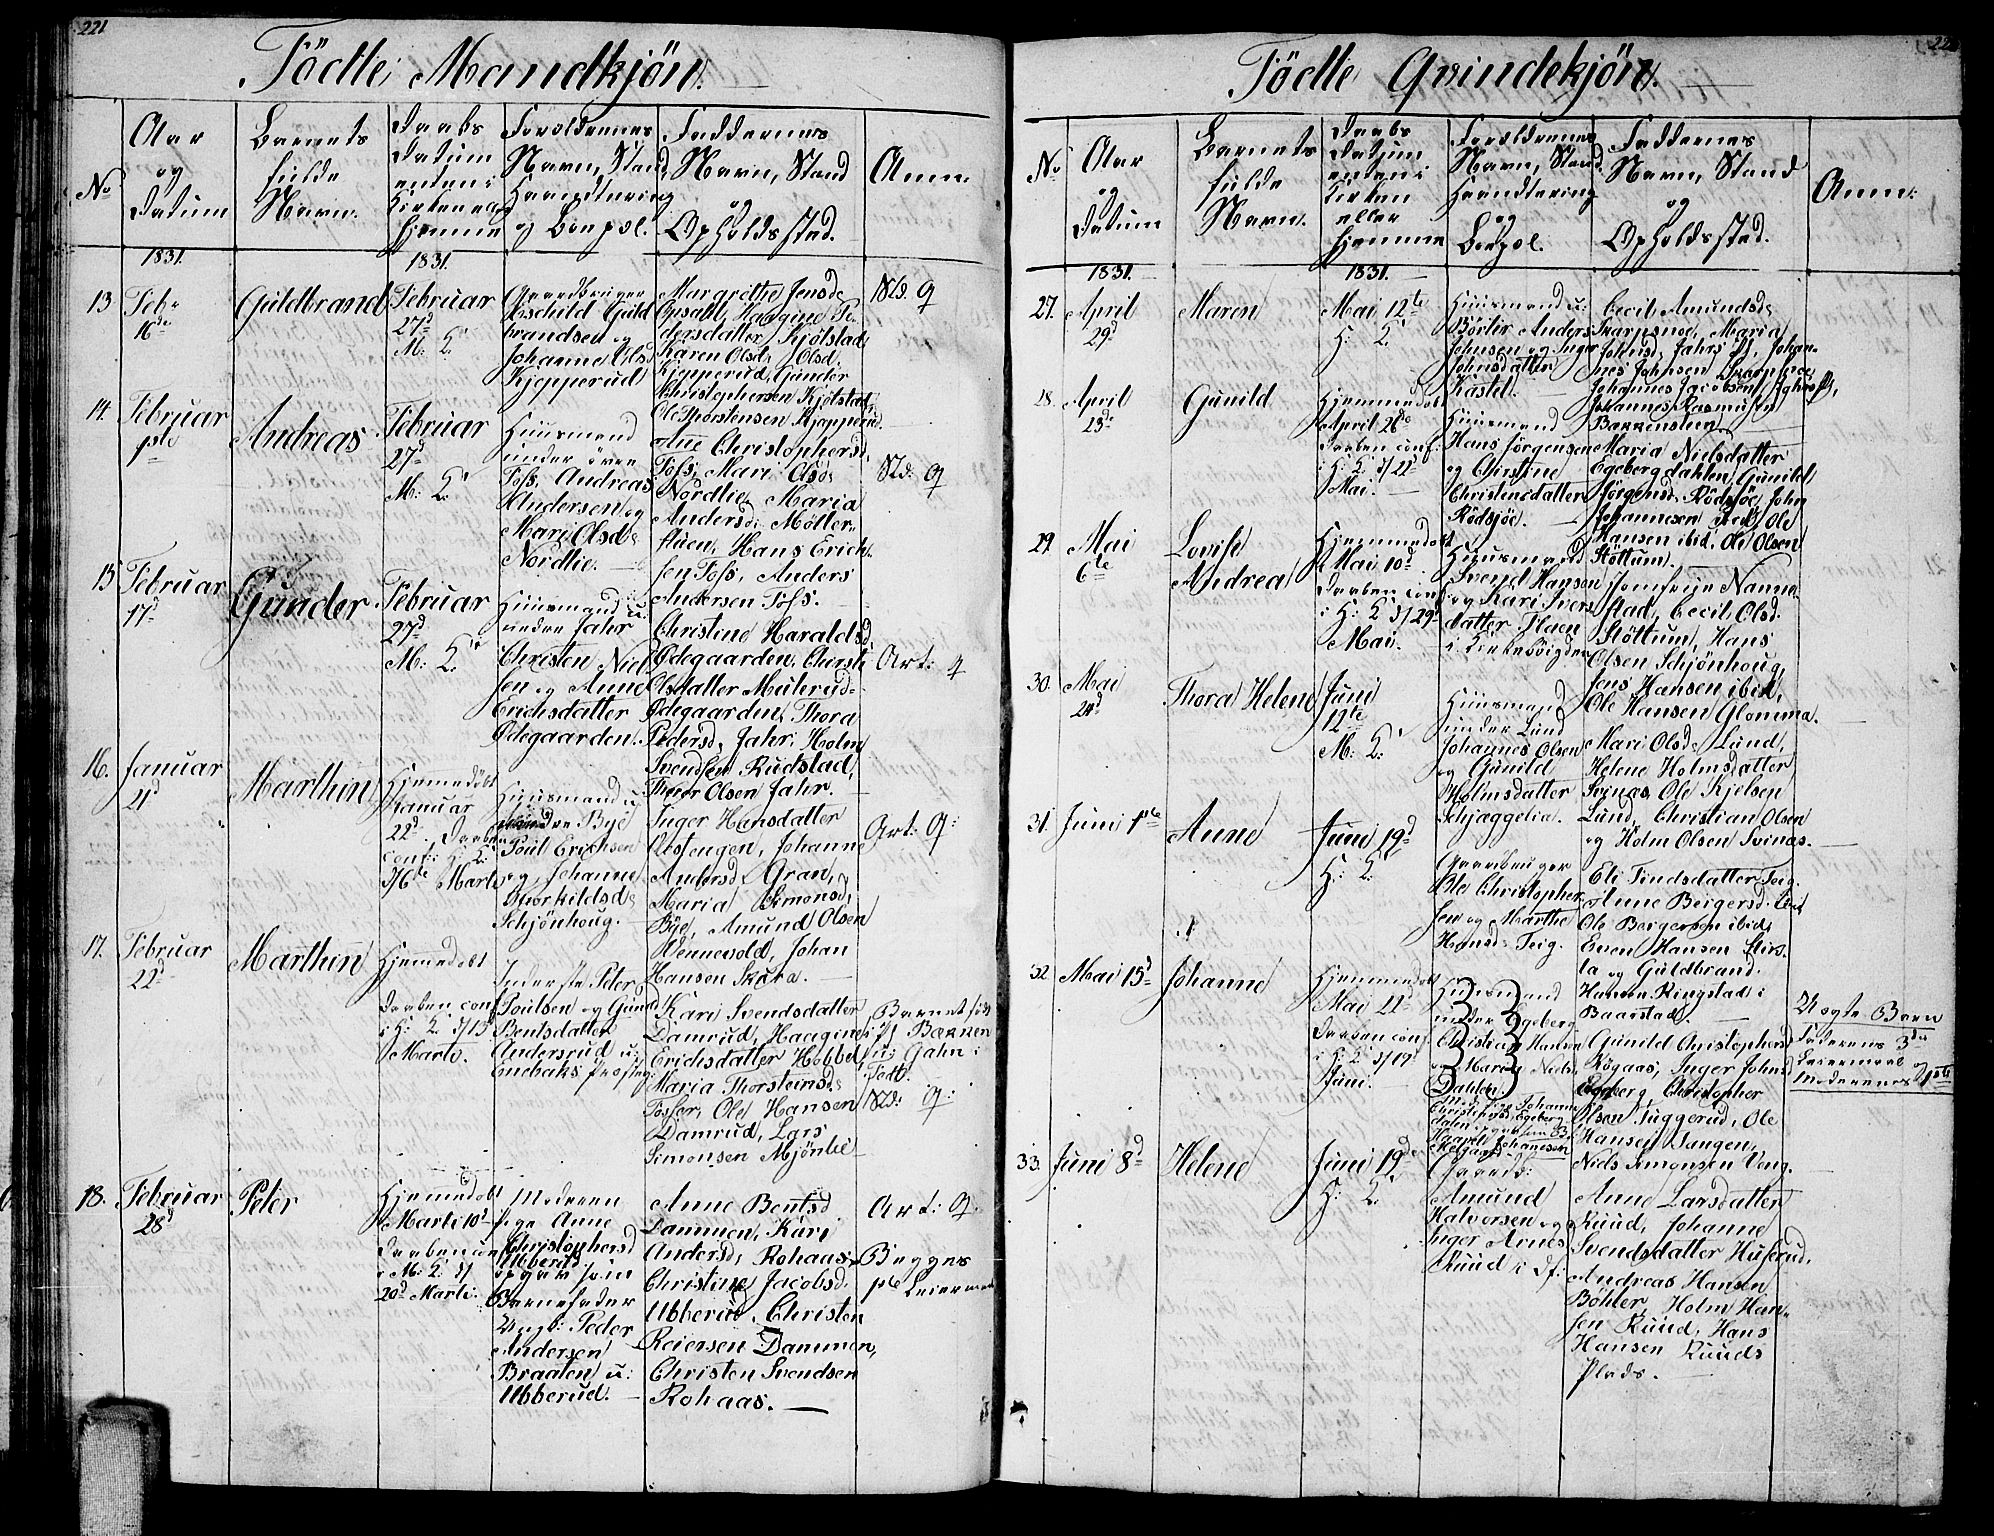 221
Födte Mandkjön.
No
Aar
og
Datum
Barnets
fulde
Navn.
Daabs
Datum
enten i
Kirken el
hjemme
Foreldrenes
Navn, Stand
Haandtering
og Boepæl.
Faddernes
Navn, Stand
og
Opholdssted.
Anm:
1831.
1831.
13
Feb:
16de
Guldbrand
Februar
27d
M: K:
Gaardbruger
Eskild Guld
brandsen og
Johanne Ols
Kjepperud
Margrethe Jensd:
Opsahl, Haagine Pe-
dersdatter Kjölstad
Karen Olsd: Olsd:
Kjepperud, Gunder
Christophersen Kjölstad
Ole Thorstensen Kjepperud.
Nd: q
14.
Februar
1ste
Andreas
Februar
27d
M: K:
Huusmand
under övre
Foss, Andreas
Andersen og
Mari Olsd:
Nordlie.
Ane Christophersd:
Foss, Mari Olsd:
Nordlie, Maria
Andersd: Möller-
fladen, Hans Erich-
sen Foss, Anders
Andersen Foss.
Nd: q
15
Februar
17d
Gunder
Februar
27d
M: K:
Huusmand u:
nedre Jahr
Christen Niel
sen og Anne
Erichsdatter
Ödegaarden.
Christine Haraldsd:
Ödegaarden, Chirsti
Olsdatter Muhrud-
Ödegaarden, Thora
Pedersd: Jahr, Holm
Svendsen Rudstad,
Thor Olsen Jahr.
Art: q
16.
Januar
21d
Marthin
Hjemmedöbt
Januar
22d
Daaben
conf: H: K:
d/6te Marti
Huusmand u:
nedre Bye
Poul Erichsen
og Johanne
Thorkildsd:
Schjönhoug.
Inger Hansdatter
Olestengen, Johanne
Andersd: Gran,
Maria Simonsd:
Bye, Amund Olsen
Wennevold, Johan
Hansen Skura.
Art: q:
17.
Februar
22d
Marthin
Hjemmedöbt
Daaben conf
i H: K: d/13
Marti.
Inderste Peter
Poulsen og Guned
Bentsdatter
Andersrud u:
Enebaks Præsteg:
Kari Svendsdatter
Damrud, Haagine
Erichsdatter Hobbel,
Maria Thorsteinsd:
Fosser, Ole Hansen
Damrud, Lars
Simonsen Mjönlie
Barnet föd
i Pl Bakken
u: Gahn i
Fedt.
Nd: q:
18.
Februar
28d
Peter
Hjemmedöbt
Marti 10d
Daaben con
i M: K: d/
20d Marti.
Moderen
pige Anne
Christophersd
Ubberud
opgav som
Barnefader
Ungk: Peder
Andersen
Braaten u:
Ubberud.
Anne Bentsd
Dammen, Kari
Andersd: Rohaas,
Christine Jacobsd:
Ubberud, Christen
Reiersen Dammen,
Christen Svendsen
Rohaas.
Art: q.
Begges
1ste Leiermaal
Födte Qvindekjön.
No
Aar
og
Datum
Barnets
fulde
Navn.
Daabs
Datum
enten i
Kirken
eller
hjemme
Foreldrenes
Navn, Stand
Haandtering
og
Boepæl.
Faddernes
Navn, Stand
og
Opholdssted.
Anm:
1831.
1831.
27.
April
29d
Maren
Mai 12te
H: K:
Huusmand u:
Börter Anders
Johnsen og Inger
Johnsdatter
Kastel.
Cecil Amundsd:
Skarpsnoe, Maria
Johnsd: Jahrs Ei, Johan-
nes Johnsen Skarpsnoe
Johannes Jacobsen Jahrs Ei,
Johannes Rasmusen
Bakkensteen.
28.
April
23d
Gunild
Hjemmedöbt
April 26de
Daaben conf:
i H: K: d/22d
Mai.
Huusmand
Hans Jörgensen
og Christine
Christensdatter
Rödsjöe.
Maria Nielsdatter
Egebergdahlen, Gunild
Jörgensd: Rödsjöe, John
Johannesen ibed, Ole
Hansen ibid, Ole Olsen
Stöttum.
29.
Mai
6te
Lovise
Andrea
Hjemmedöbt
Mai 10d
Daaben conf
i H: K: d/29d
Mai.
Huusmand
Svend Hansen
og Kari Ivers
datter Flaen
i Kirkeböigden
Jomfrue Nanne-
stad, Cecil Olsd:
Stöttum, Hans
Olsen Schjönhoug,
Jens Hansen ibid,
Ole Hansen Glomma.
30.
Mai
24d
Thora Helene
Juni
12te
M: K:
Huusmand
under Lund
Johannes Olsen
og Gunild
Holmsdatter
Schjæggelia.
Mari Olsd: Lund,
Helene Holmsdatter
Svinås, Ole Kjelsen
Lund, Christian Olsen
og Holm Olsen Svinås.
31.
Juni 1ste
Anne
Juni 19d
H: K:
Gaardbruger
Ole Christopher
sen og Marthe
Hansd: Teig.
Eli Findsdatter Teig.
Anne Bergersd: ibid
Ole Bergersen ibid,
Even Hansen
la og Guldbrand
Hansen Ringstad i
Baastad.
32.
Mai 15d
Johanne
Hjemmedöbt
Mai 22d
Daaben con
i H: K: d/19d
Juni.
Huusmand
under Egeberg
Christian Hansen
og Mari Niels
Dahlen
Moder: Pige Johanne
Christophersd: Egeberg
Johannesen
Gunild Christophersd
Rögaas, Inger Johnsd
Egeberg, Christopher
Olsen Tuggerud, Ole
Hansen Tangen,
Niels Simonsen Veng.
Uægte Barn
Faderens 3die
Leiermaal og
Moderenes 1ste
33.
Juni 8d
Helene
Juni 19de
H: K:
Gaardb:
Amund
Halvorsen og
Inger Arnes
Ruud i Df:
Anne Larsdatter
Ruud, Johanne
Svendsdatter Huserud,
Andreas Hansen
Böhler, Holm Han-
sen Ruud, Hans
Hansen Ruuds
Plads.